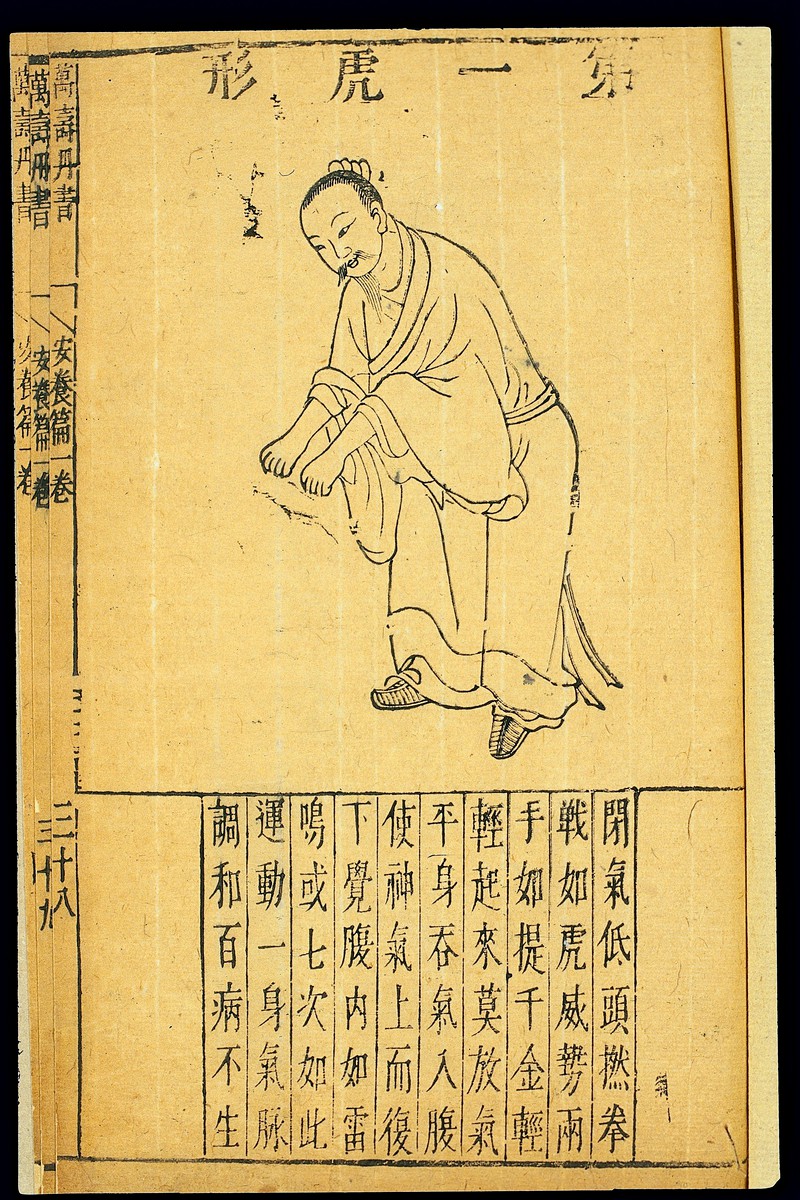 第一虎形
閉氣低頭撚拳
戰如虎威勢兩
手如提千金輕
輕起來莫放氣
平身吞氣入腹
使神氣上而復
下覺腹內如雷
鳴或七次如此
運動一身氣脉
調和百病不生
萬壽丹書
安養篇一卷
三十八
萬壽丹書
安養篇一卷
三十九
萬壽丹書